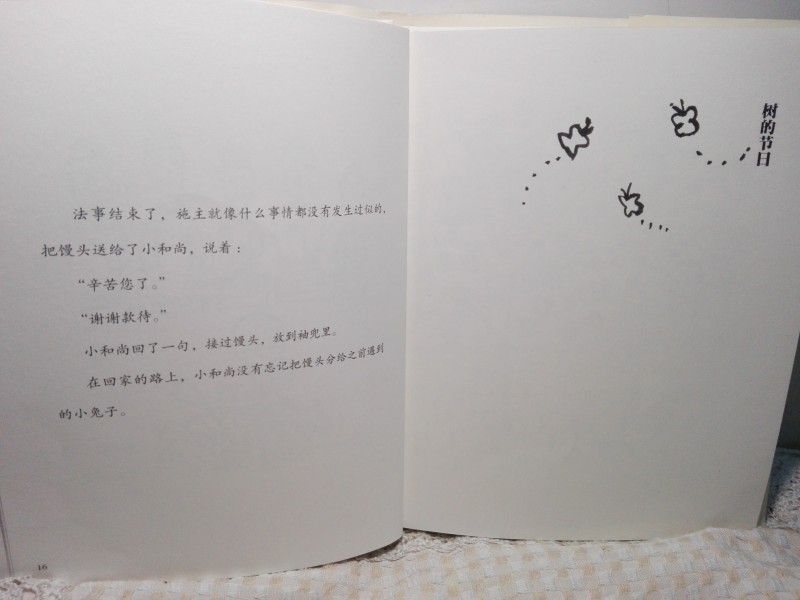 法事结束了，施主就像什么事情都没有发生过似的，
把馒头送给了小和尚，说着：
“辛苦您了。”
“谢谢款待。”
小和尚回了一句，接过馒头，放到袖兜里。
在回家的路上，小和尚没有忘记把馒头分给之前遇到
的小兔子。
16
树的节日